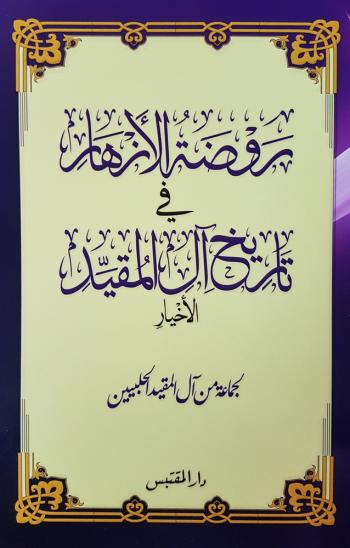 رَوْضَةُ الأَزهَار
في
تاريخ آل المُقيَّد
الأَخْيَارِ
لجماعة من آل المقيد الحلبيين
دار المقتبس